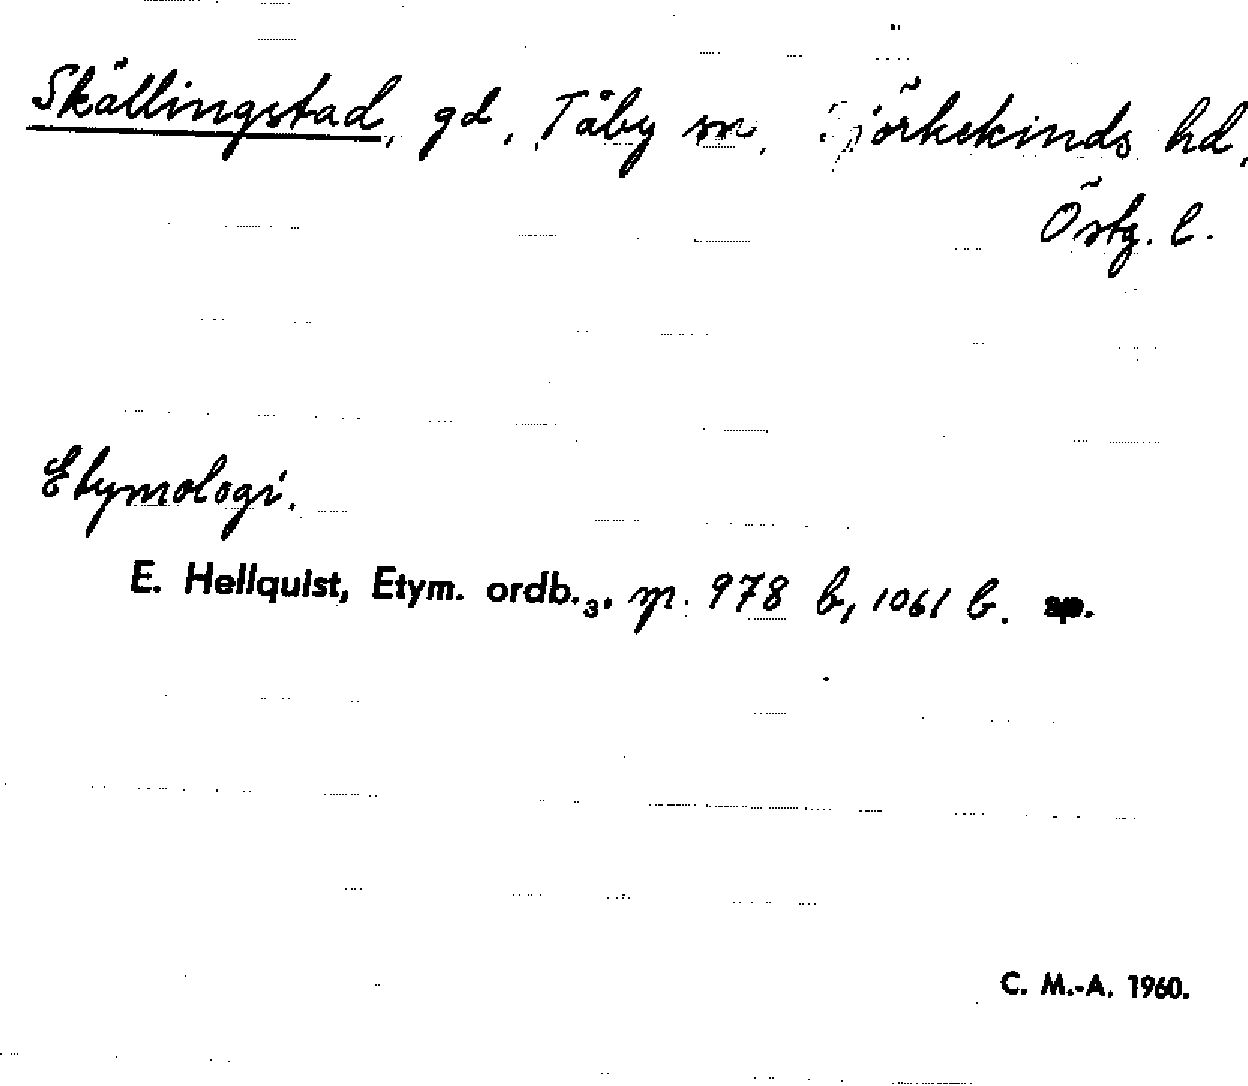 Skällingstad, gd, Täby sn, Björkekinds hd,
Östg. l.
Etymologi.
E. Hellquist, Etym. ordb.3. sp. 978 b, 1061 b.
C. M.-A. 1960.